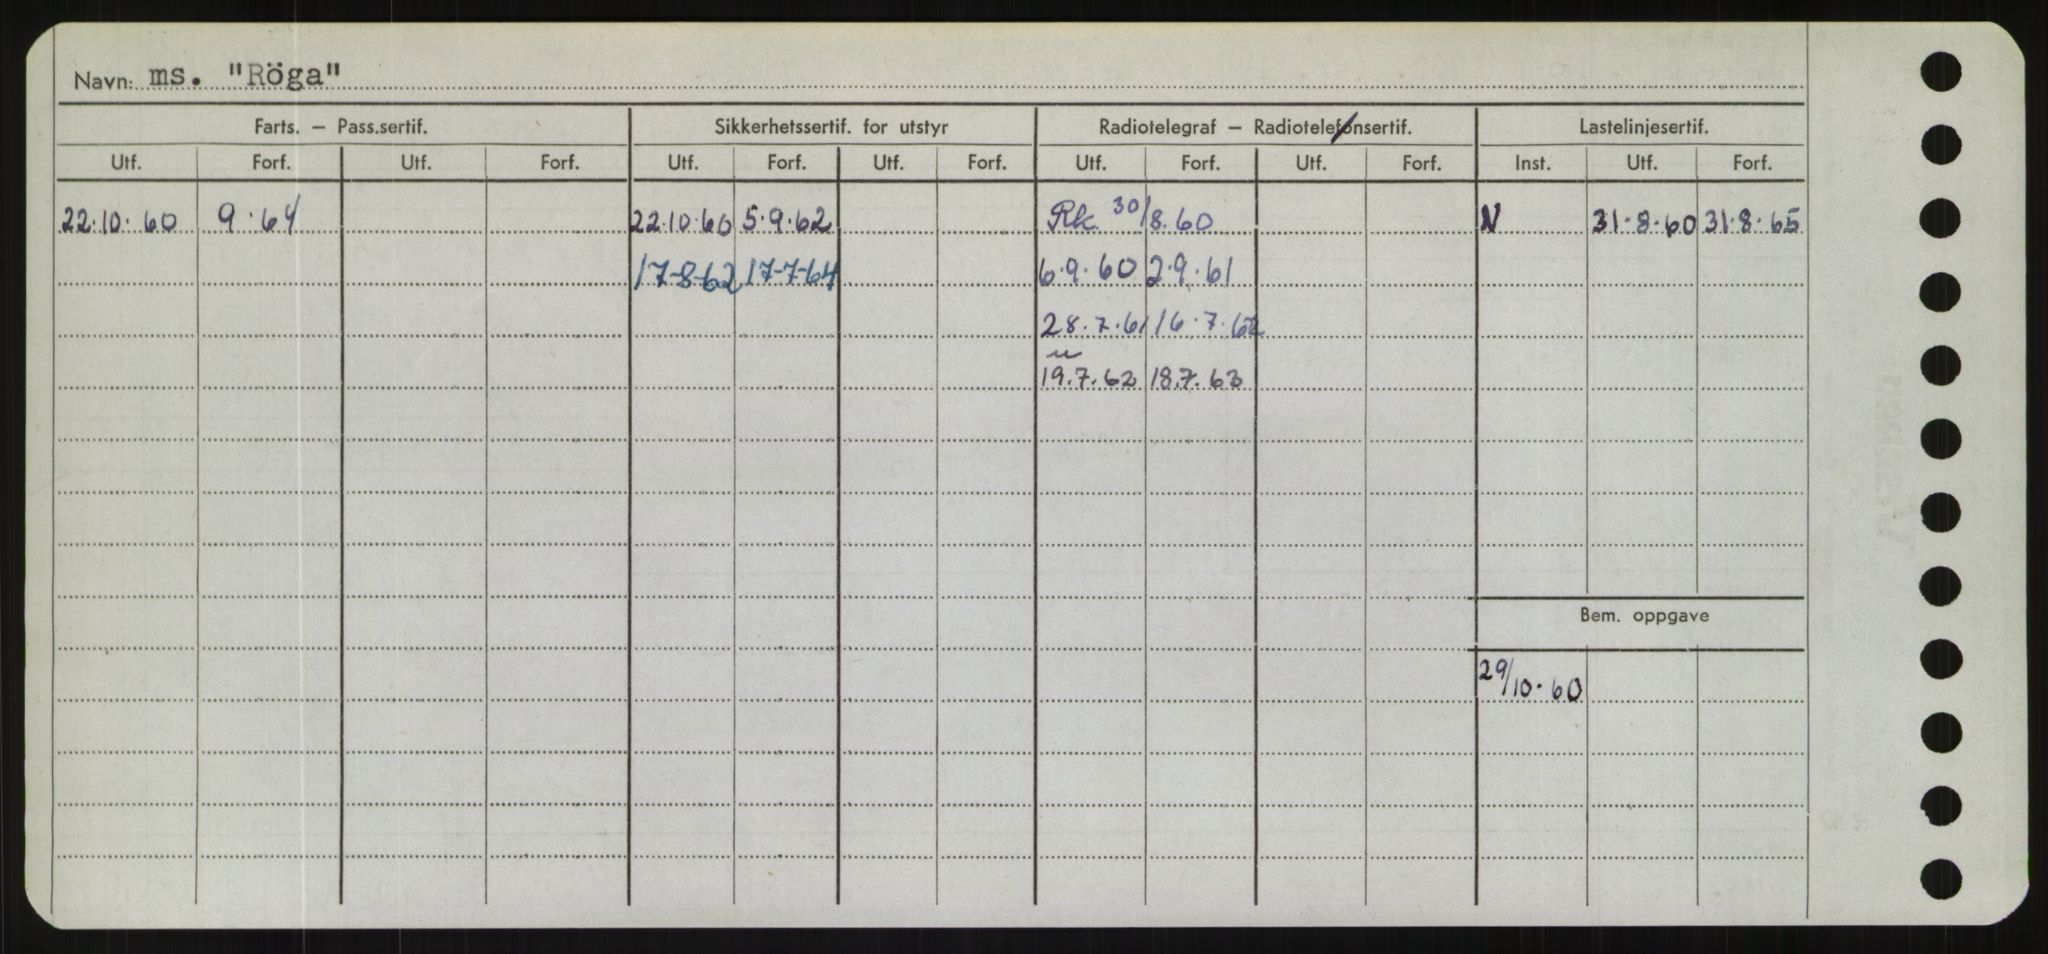 Navn: ms. "Röga"
Farts. – Pass.sertif. Sikkerhetssertif. for utstyr Radiotelegraf – Radiotelefonsertif. Lastelinjesertif.
Utf. Forf. Utf. Forf. Utf. Forf. Utf. Forf. Utf. Forf. Utf. Forf. Inst. Utf. Forf.
22.10.60 9.64 22.10.60 5.9.62 Rk. 30/8.60 N 31.8.60 31.8.65
17-8-62 17-7-64 6.9.60 2.9.61
28.7.61 16.7.62
19.7.62 18.7.63
Bem. oppgave
29/10.60